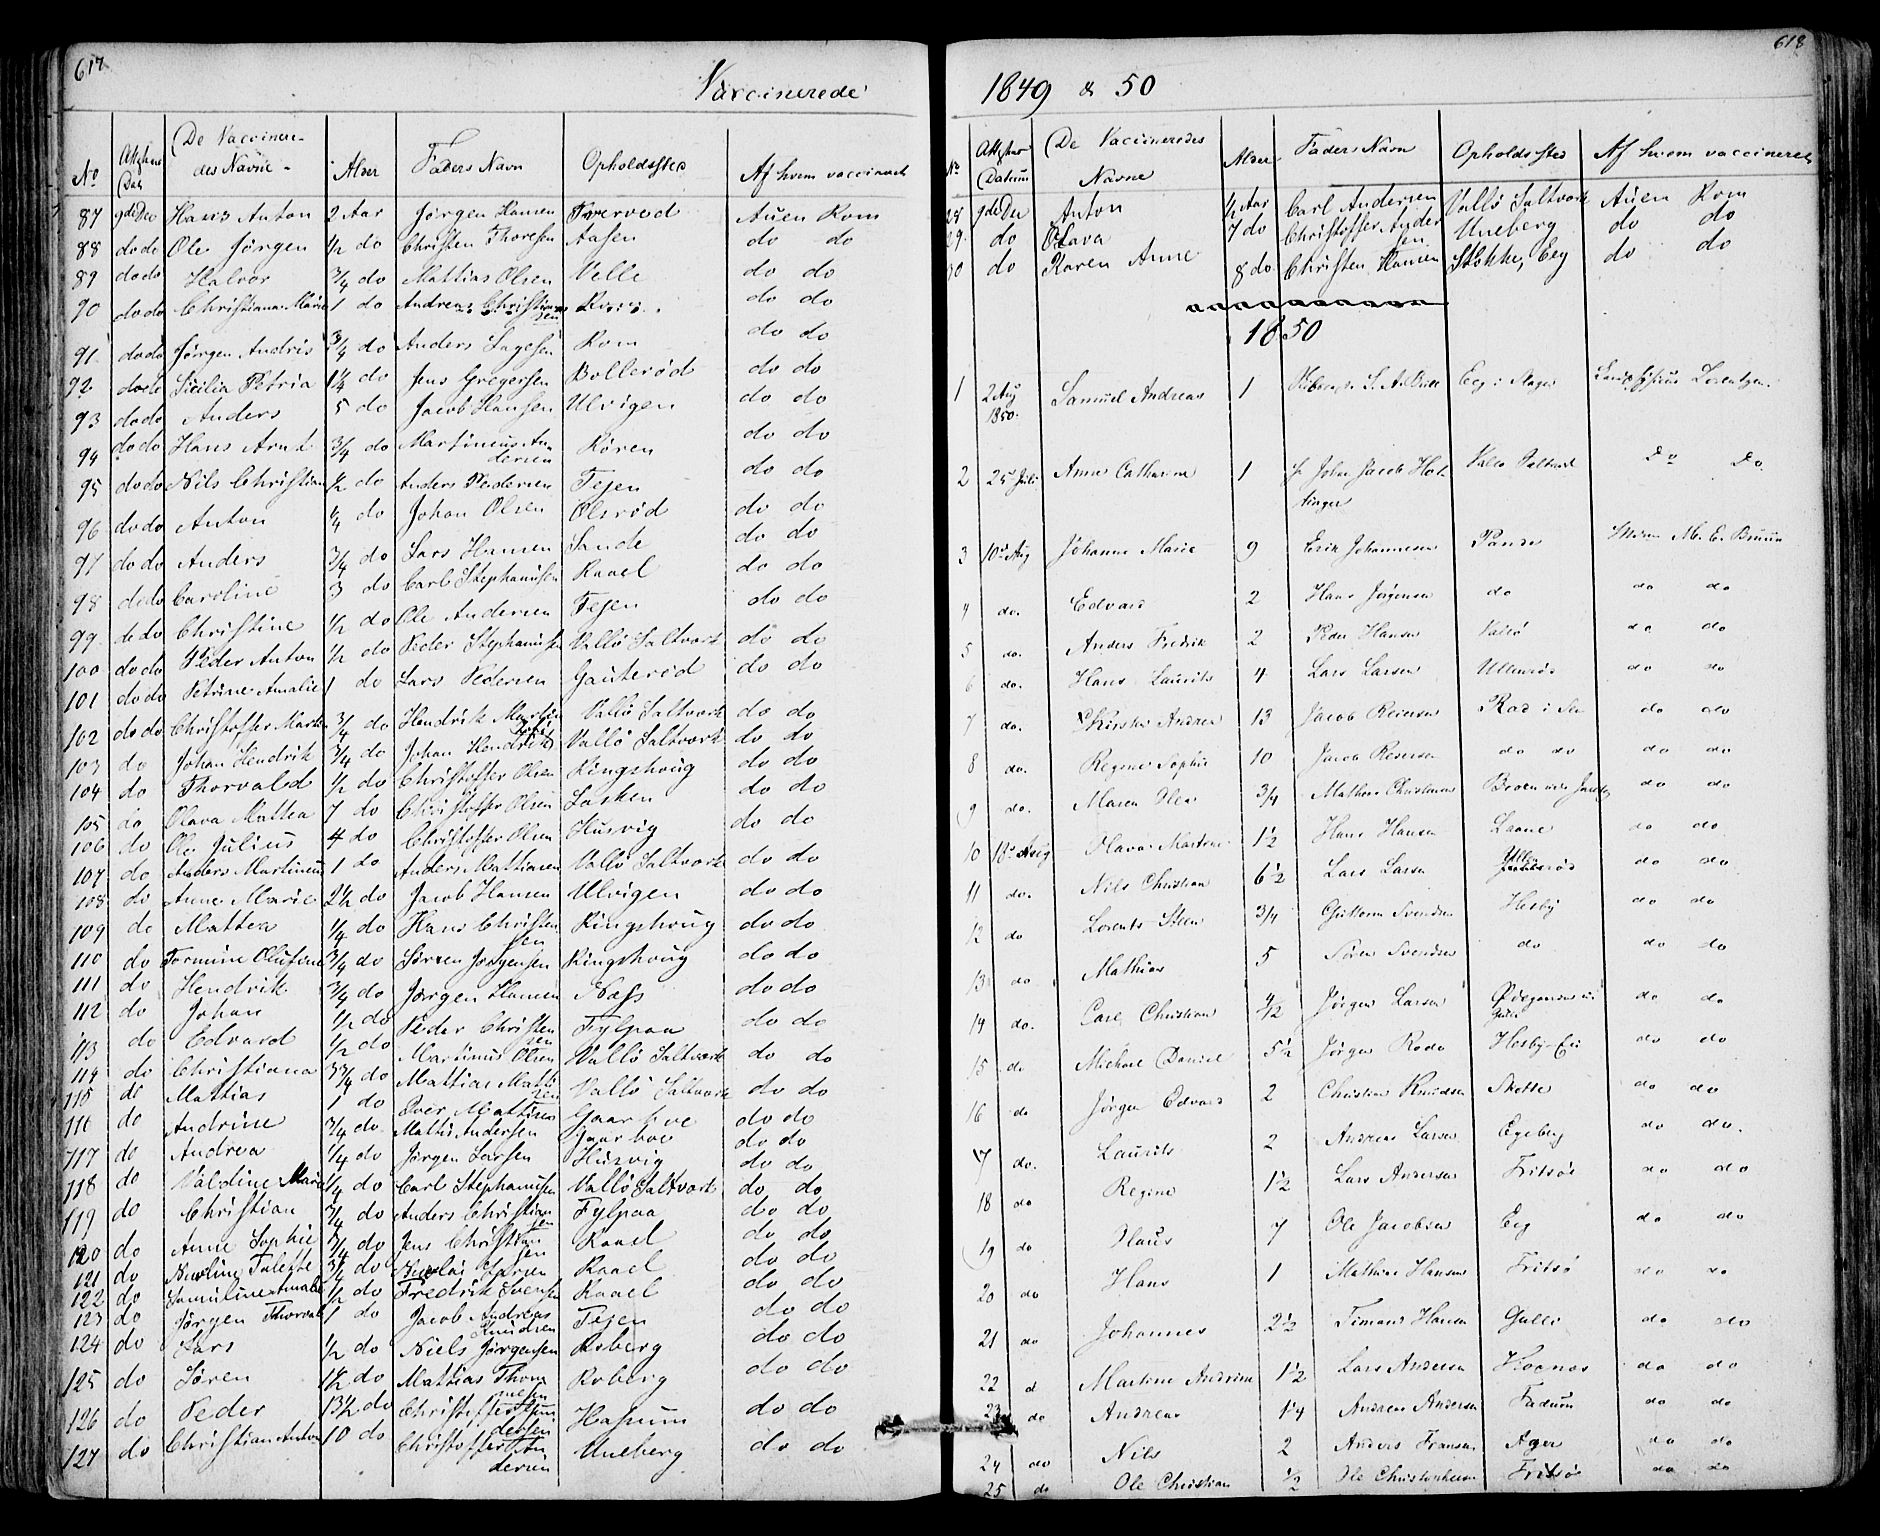 617
Vaccinerede
No
Attestens Dat
De Vaccineredes Navne
Alder
Faders Navn
Opholdssted
Af hvem vaccineret
87 9de Dec Hans Anton 2 Aar Jørgen Hansen Tverved Auen Rom
88 do do Ole Jørgen 1/2 do Christen Thoresen Aasen do do
89 do do Halvor 3/4 do Mattias Olsen Velle do do
90 do do Christiana Marie 1 do Andreas Christiansen do do
91 do do Jørgen Andris 3/4 do Anders Rom do do
92 do do Sicilia Petria 1 1/4 do Jens Gregersen Bollerød do do
93 do do Anders 5 do Jacob Hansen Ulvigen do do
94 do do Hans Arnt 3/4 do Martinius Andersen Røren do do
95 do do Nils Christian 1/2 do Anders Pedersen Tejen do do
96 do do Anton 1/4 do Johan Olsen Olsrød do do
97 do do Anders 3/4 do Lars Hansen Sande do do
98 do do Caroline 3 do Carl Stephansen Raael do do
99 do do Christine 1/2 do Ole Andersen Tejen do do
100 do do Peder Anton 1/2 do Peder Stephanisen Vallö Saltverk do do
101 do do Petrine Amalie 1 do Lars Pedersen Gauterød do do
102 do do Christoffer 3/4 do Hendrik Vallö Saltverk do do
103 do Johan Hendrik 3/4 do Johan Hendrik Vallö Saltverk do do
104 do Thorvald 1/2 do Christoffer Olsen Ringshoug do do
105 do Olava Mattea 7 do Christoffer Olsen Lasken do do
106 do Ole Julius 4 do Christoffer Olsen Husvig do do
107 do Anders Martinius 1 do Anders Mattiasen Vallö Saltverk do do
108 do Anne Marie 2 1/2 do Jacob Hansen Ulvigen do do
109 do Mattea 1/4 do Hans Christensen Ringshoug do do
110 do Tormine Olufine 3/4 do Sörren Jørgensen Ringshoug do do
111 do Hendrik 3/4 do Jørgen Hansen Næss do do
112 do Johan 1/2 do Peder Christensen Fylpaa do do
113 do Edvard 1/2 do Martinus Olsen Vallö Saltverk do do
114 do Christiana 3 3/4 do Mattias Vallö Saltverk do do
115 do Mattias 1 do Iver Mattisen Gaarboe do do
116 do Andrine 3/4 do Mattis Andersen Gaarboe do do
117 do Andrea 1/4 do Jørgen Larsen Husvig do do
118 do Valdine Marie 1/4 do Carl Stephanisen Vallö Saltverk do do
119 do Christian 3/4 do Anders Christiansen Fylpaa do do
120 do Anne Sophie 3/4 do Jens Christiansen Raael do do
121 do Talette 3/4 do Nicolai Larsen Raael do do
122 do Amalie 1/2 do Fredrik Svensen Raael do do
123 do Jørgen Thorval 1 do Jacob Andreas Knudsen Tejen do do
124 do Lars 1/2 do Niels Jørgensen Roberg do do
125 do Sören 1 1/2 do Mattias Roberg do do
126 do Peder 13 1/2 do Christoffer Hassum do do
127 do Christian Anton 10 do Christoffer Andersen Uneberg do do
618
1849 & 50
No
Attestens Datum
De Vaccineredes Navne
Alder
Faders Navn
Opholdssted
Af hvem vaccineret
28 9de Dec Anton 1/2 Aar Carl Andersen Vallö Saltverk Auen Rom
29 do Olava 7 do Christoffer Andersen Uneberg do do
30 do Karen Anne 8 do Christen Hansen Stokke, Eeg do do
1850
1 2 Aug 1850. Samuel Andreas 1 Eeg i Lorentzen
2 25 Juli Anne Cathrine 1 John Jacob Vallö Saltverk Do Do
3 10de Aug Johanne Marie 9 Erik Johannesen M. E. Bruun
4 do. Edvard 2 Hans Jørgensen do do do
5 do. Anders Fredrik 2 Peder Hansen Vallö do do
6 do. Hans Laurits 4 Lars Larsen Ullenrød do do
7 do. Andrea 13 Jacob do do
8 do. Regine Sophie 10 Jacob do do do do
9 do. Maren 3/4 Mathias Christensen do do
10 18de Aug Olava Martine 1 1/2 Hans Hansen do do
11 do. Nils Christian 6 1/2 Lars Larsen do do
12 do Lorents 3/4 Guttorm Svendsen Hesby do do
13 do Mathias 5 Sören Svendsen do do do
14 do. Carl Christian 4/2 Jørgen Larsen do do
15 do Michael Daniel 5 1/2 Jørgen do do
16 do Jørgen Edvard 2 Christian Knudsen do do
17 do. Laurits 2 Andreas Larsen Egeberg do do.
18 do Regine 1 1/2 Lars Andersen Fritsøe do do
19 do Olaus 7 Ole Jacobsen Eeg do do
20 do Hans 1 Mathias Hansen Fritsø do do
21 do Johannes 2 1/2 Hansen Gulle do do
22 d Martine Andrine 1 1/2 Lars Andersen do do
23 do Andreas 1/4 Andreas Andersen Fadum do do
24 do Nils 2 Anders Fransen do do
25 do Ole Christian 1/2 Ole Christophersen Fritsøe do do